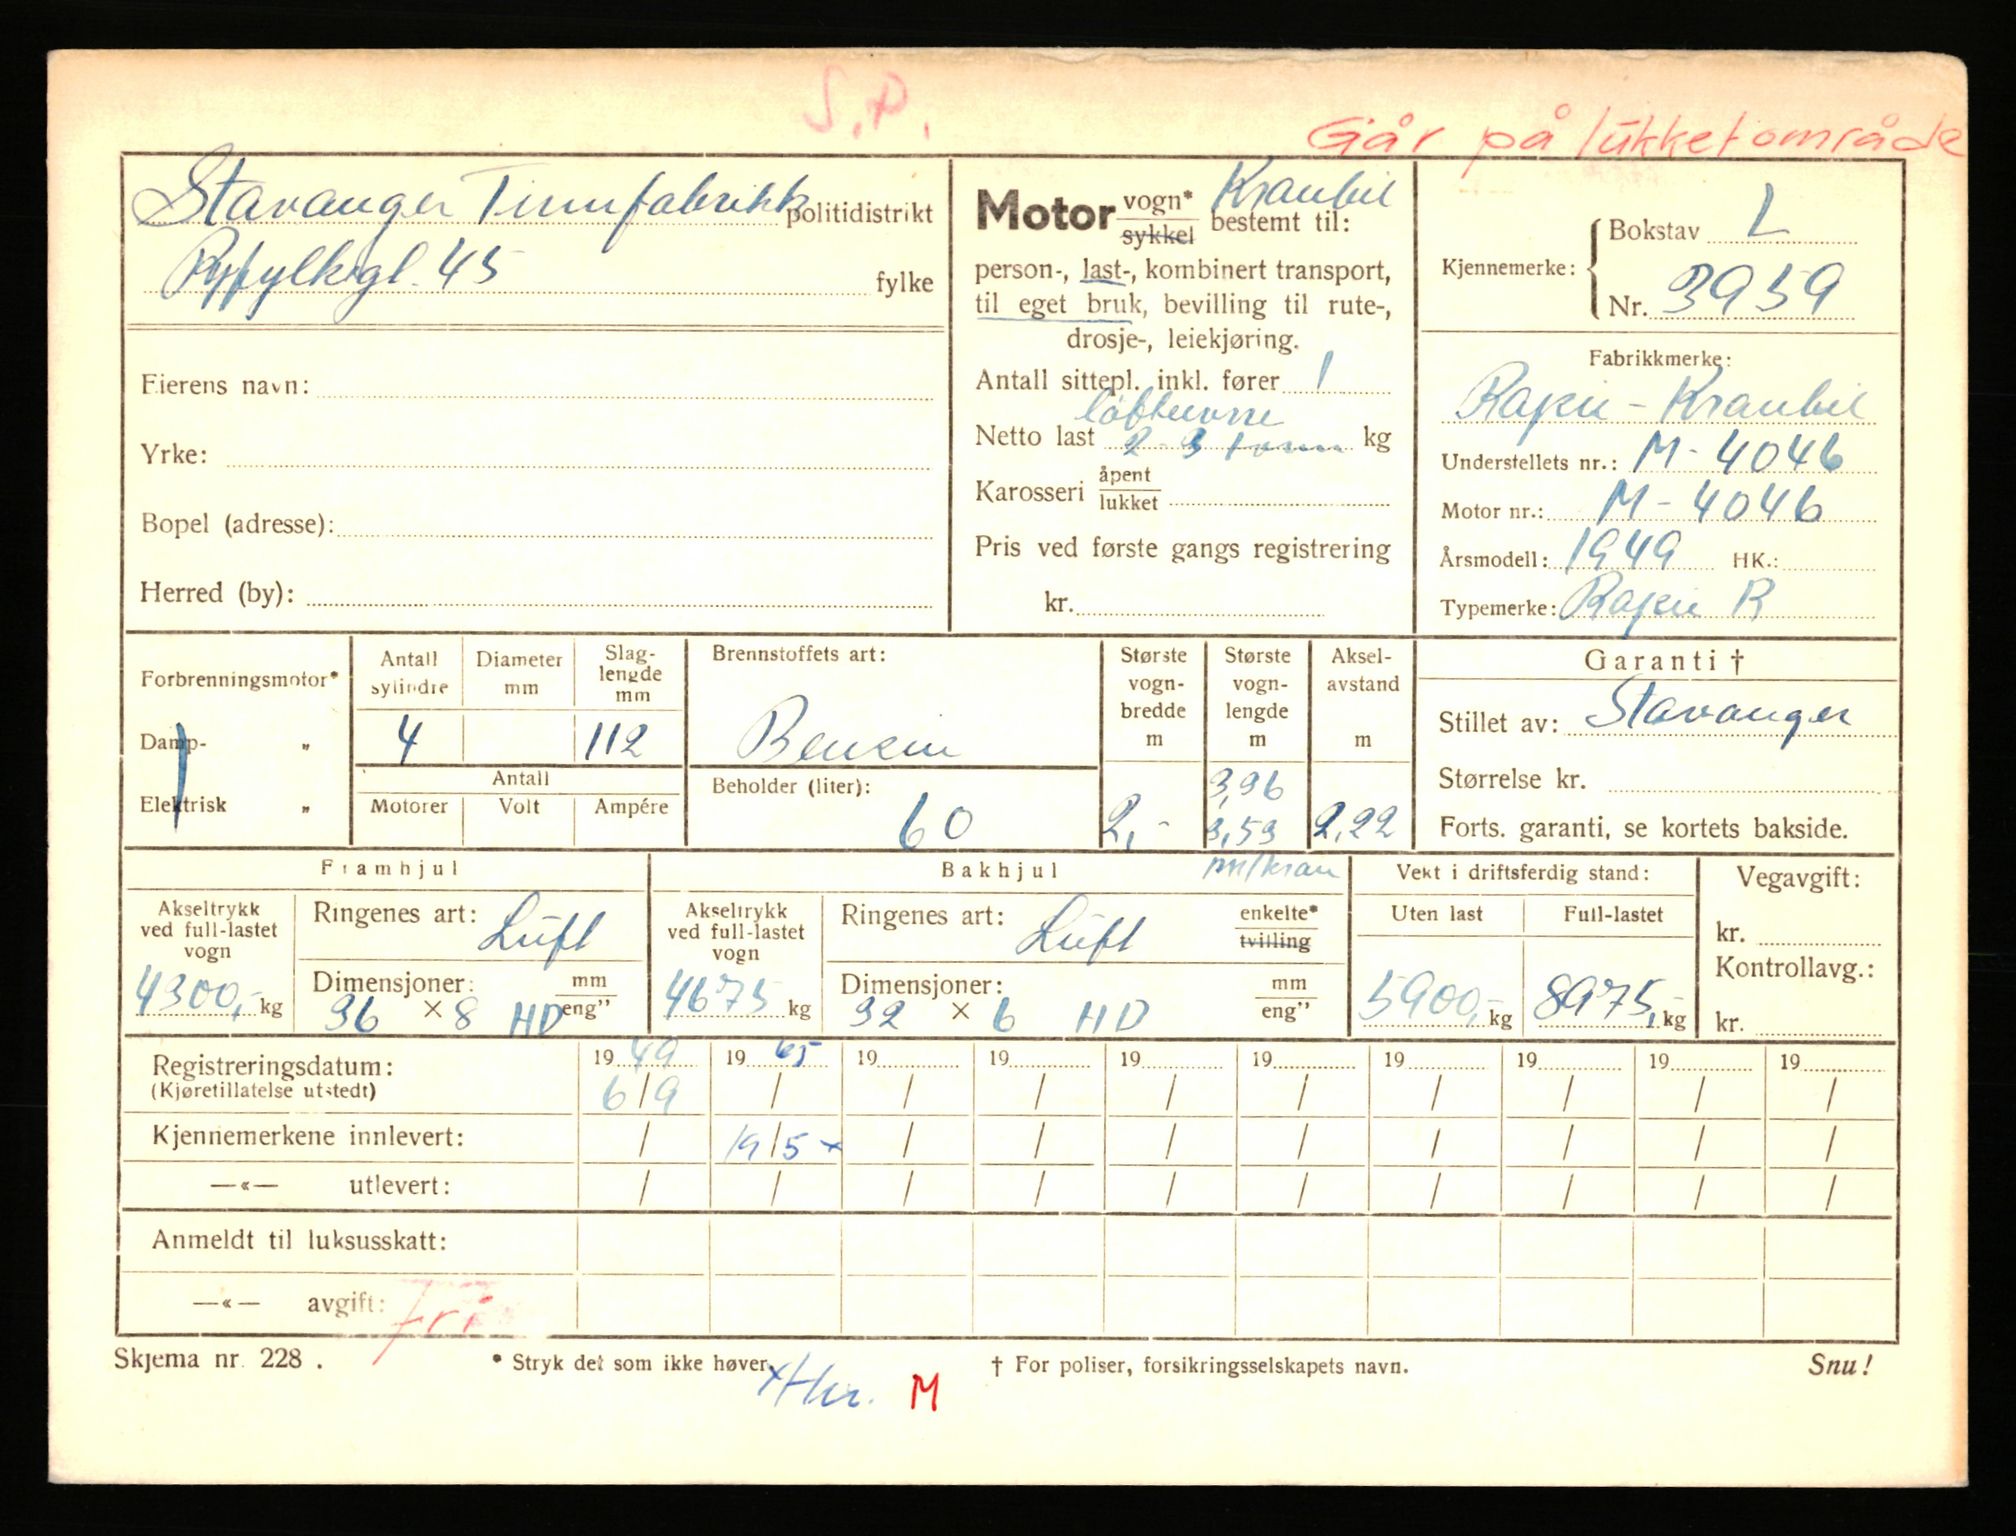 S.P.
Går på lukket område
Stavanger Tinnfabrikk politidistrikt
Ryfylkegt. 45 fylke
Eierens navn:
Yrke:
Bopel (adresse):
Herred (by):
Motor vogn* Kranbil
sykkel bestemt til:
person-, last-, kombinert transport,
til eget bruk, bevilling til rute-,
drosje-, leiekjøring.
Antall sittepl. inkl. fører 1
løfteevne
Netto last 2-3 tonn kg
Karosseri åpent
lukket
Pris ved første gangs registrering
kr.
Kjennemerke:
Bokstav L
Nr. 3959
Fabrikkmerke:
Rapie - Kranbil
Understellets nr.: M-4046
Motor nr.: M-4046
Årsmodell: 1949 HK.:
Typemerke: Rapie R
Forbrenningsmotor*
Damp- „
Elektrisk „
Antall sylindre
4
Diameter mm
Slaglengde mm
112
Antall
Motorer Volt Ampére
Brennstoffets art:
Bensin
Beholder (liter):
60
Største vogn-bredde m
2,-
Største vogn-lengde m
3,96
3,53
m/kran
Aksel-avstand m
2,22
Garanti †
Stillet av: Stavanger
Størrelse kr.
Forts. garanti, se kortets bakside.
Framhjul
Akseltrykk ved full-lastet vogn
4300,- kg
Ringenes art: Luft
Dimensjoner: mm
36 × 8 HD eng"
Bakhjul
Akseltrykk ved full-lastet vogn
4675 kg
Ringenes art: Luft enkelte*
tvilling
Dimensjoner: mm
32 × 6 HD eng"
Vekt i driftsferdig stand:
Uten last Full-lastet
5900,- kg 8975,- kg
Vegavgift:
kr.
Kontrollavg.:
kr.
Registreringsdatum: 19 49 19 65 19 19 19 19 19 19 19 19
(Kjøretillatelse utstedt) 6/9 / / / / / / / / /
Kjennemerkene innlevert: / 19/5 × / / / / / / / /
—«— utlevert: / / / / / / / / / /
Anmeldt til luksusskatt:
—«— avgift: Fri
Skjema nr. 228.
* Stryk det som ikke høver.
† For poliser, forsikringsselskapets navn.
Snu!
M